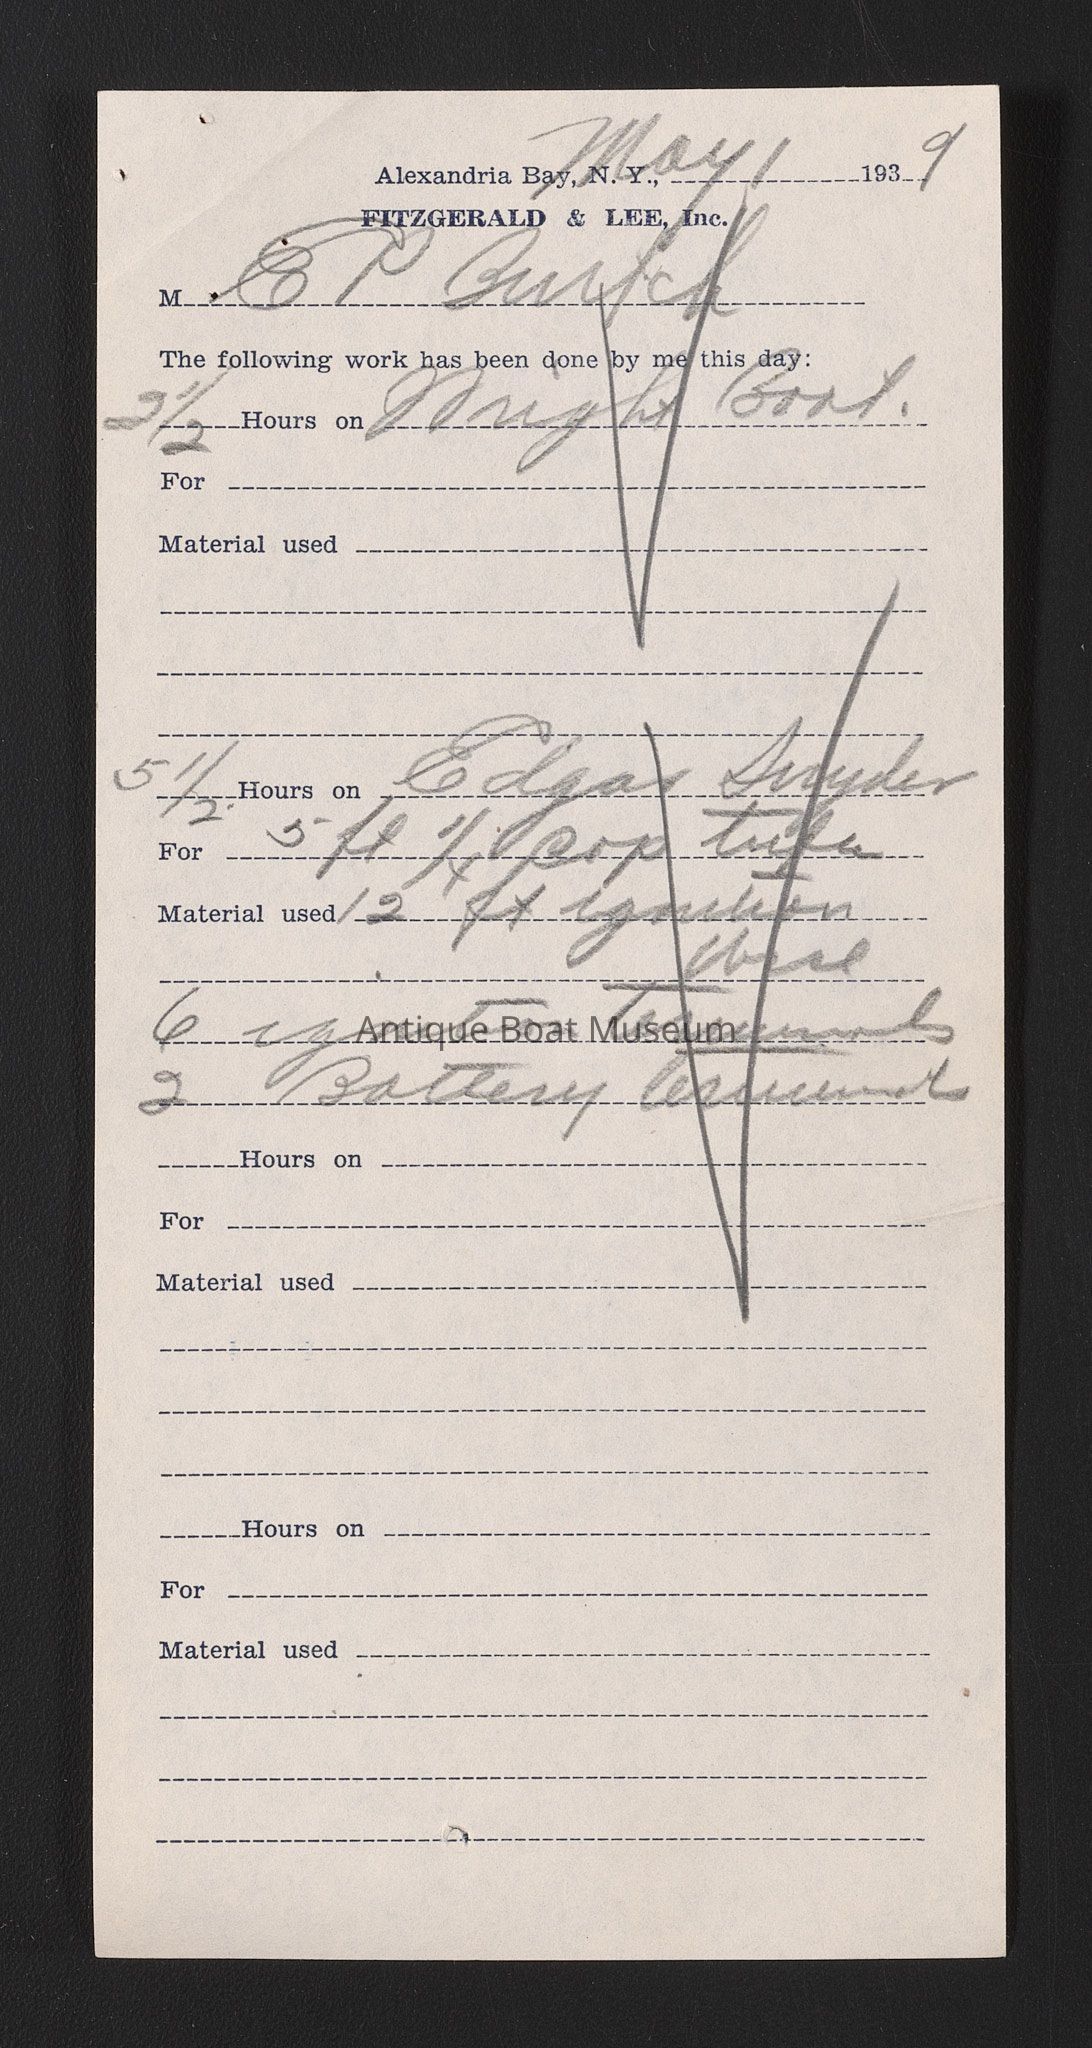 Alexandria Bay, N. Y., May 1 1939
FITZGERALD & LEE, Inc.
M E P
The following work has been done by me this day:
2 1/2 Hours on Wright Boat.
For
Material used
5 1/2 Hours on Edgar Snyder
For 5 ft 1/4 cop tube
Material used 12 ft ignition
6 ignition terminals
Antique Boat Museum
2 Battery terminals
Hours on
For
Material used
Hours on
For
Material used